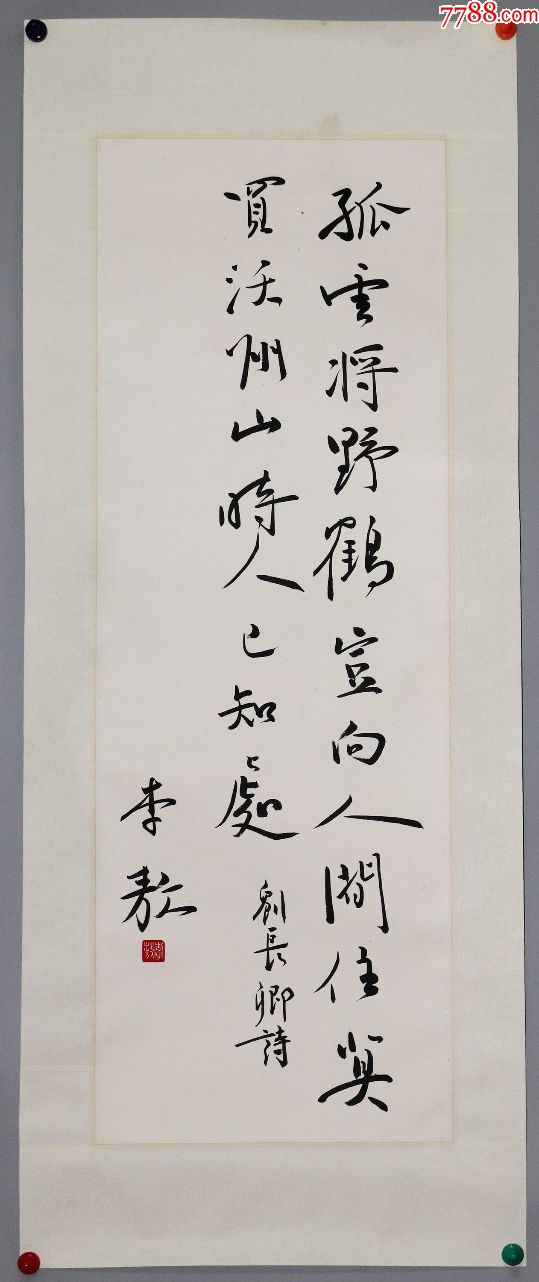 7788.com
孤雲将野鶴豈向人間住莫
買沃州山時人已知處
劉長卿詩
李敖